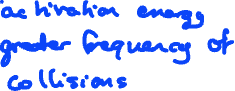 activation energy
greater frequency of
collisions